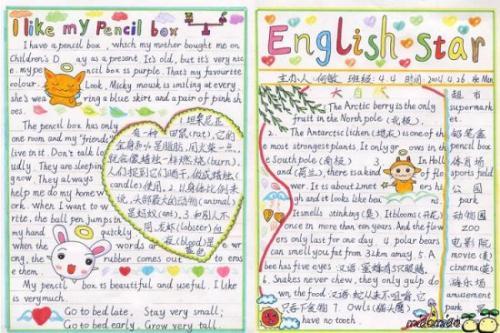 I like my Pencil box
I have a pencil box, which my mother bought me on
Children's Day as a present. It's old, but it's very nice.
my pencil box is purple. That's my favourite
colour. Look, Micky mouk is smiling at every.
she's wearing a blue skirt and a pair of pink shoes.
The pencil box has only
one room and my "friends"
live in it. Don't talk
They are sleeping
now. They always
help me do my home
work. when I want to write,
the ball pen jumps to
my hand
when the
quickly
words
are wrong, the
rubber comes out to
My pencil box is beautiful and useful. I like
is very much.
Go to bed late, Stay very small;
Go to bed early, Grow very tall.
有一种
田鼠(rat),它的
全身和小是脂肪,用火柴一点,
就会像蜡烛一样燃烧(burn),
人们捉到它们晒干,做成蜡烛(
candle)使用。2.以身体比例来
说,大脑最大的动物(animal)
是蚂蚁(ant)。3.和别人不
同,龙虾(lobster)的
血(blood)是
蓝色
English star
主办人:何敏 班级:4.4 时间:2014.4.26
大自然
The Arctic berry is the only
fruit in the North pole (北极).
2. The Antarctic lichen (地衣) is one of the
most strongest plants. It only blows in the
South pole (南极). 3. In Holl
and (荷兰), there is a kind of
flower. It is about 2 meters
high and it looks like
It smells stinking (臭). It blooms (开花)
once in more than ten years. And the flow
ers only last for one day. 4. polar bears
can smell you fat from 32km away; 5. A
bee has five eyes. 汉语:蜜蜂有5只眼睛.
6. Snakes never chew, they only gulp do
wn, the food. 汉语:蛇从来不咀嚼它
只吞下食物 7. Owls (猫头鹰)
超市
supermarket
铅笔盒
pencil box
体育场
sports field
公园
park
动物园
zoo
电影院
movie (美)
cinema (英)
游乐场
amusement
park